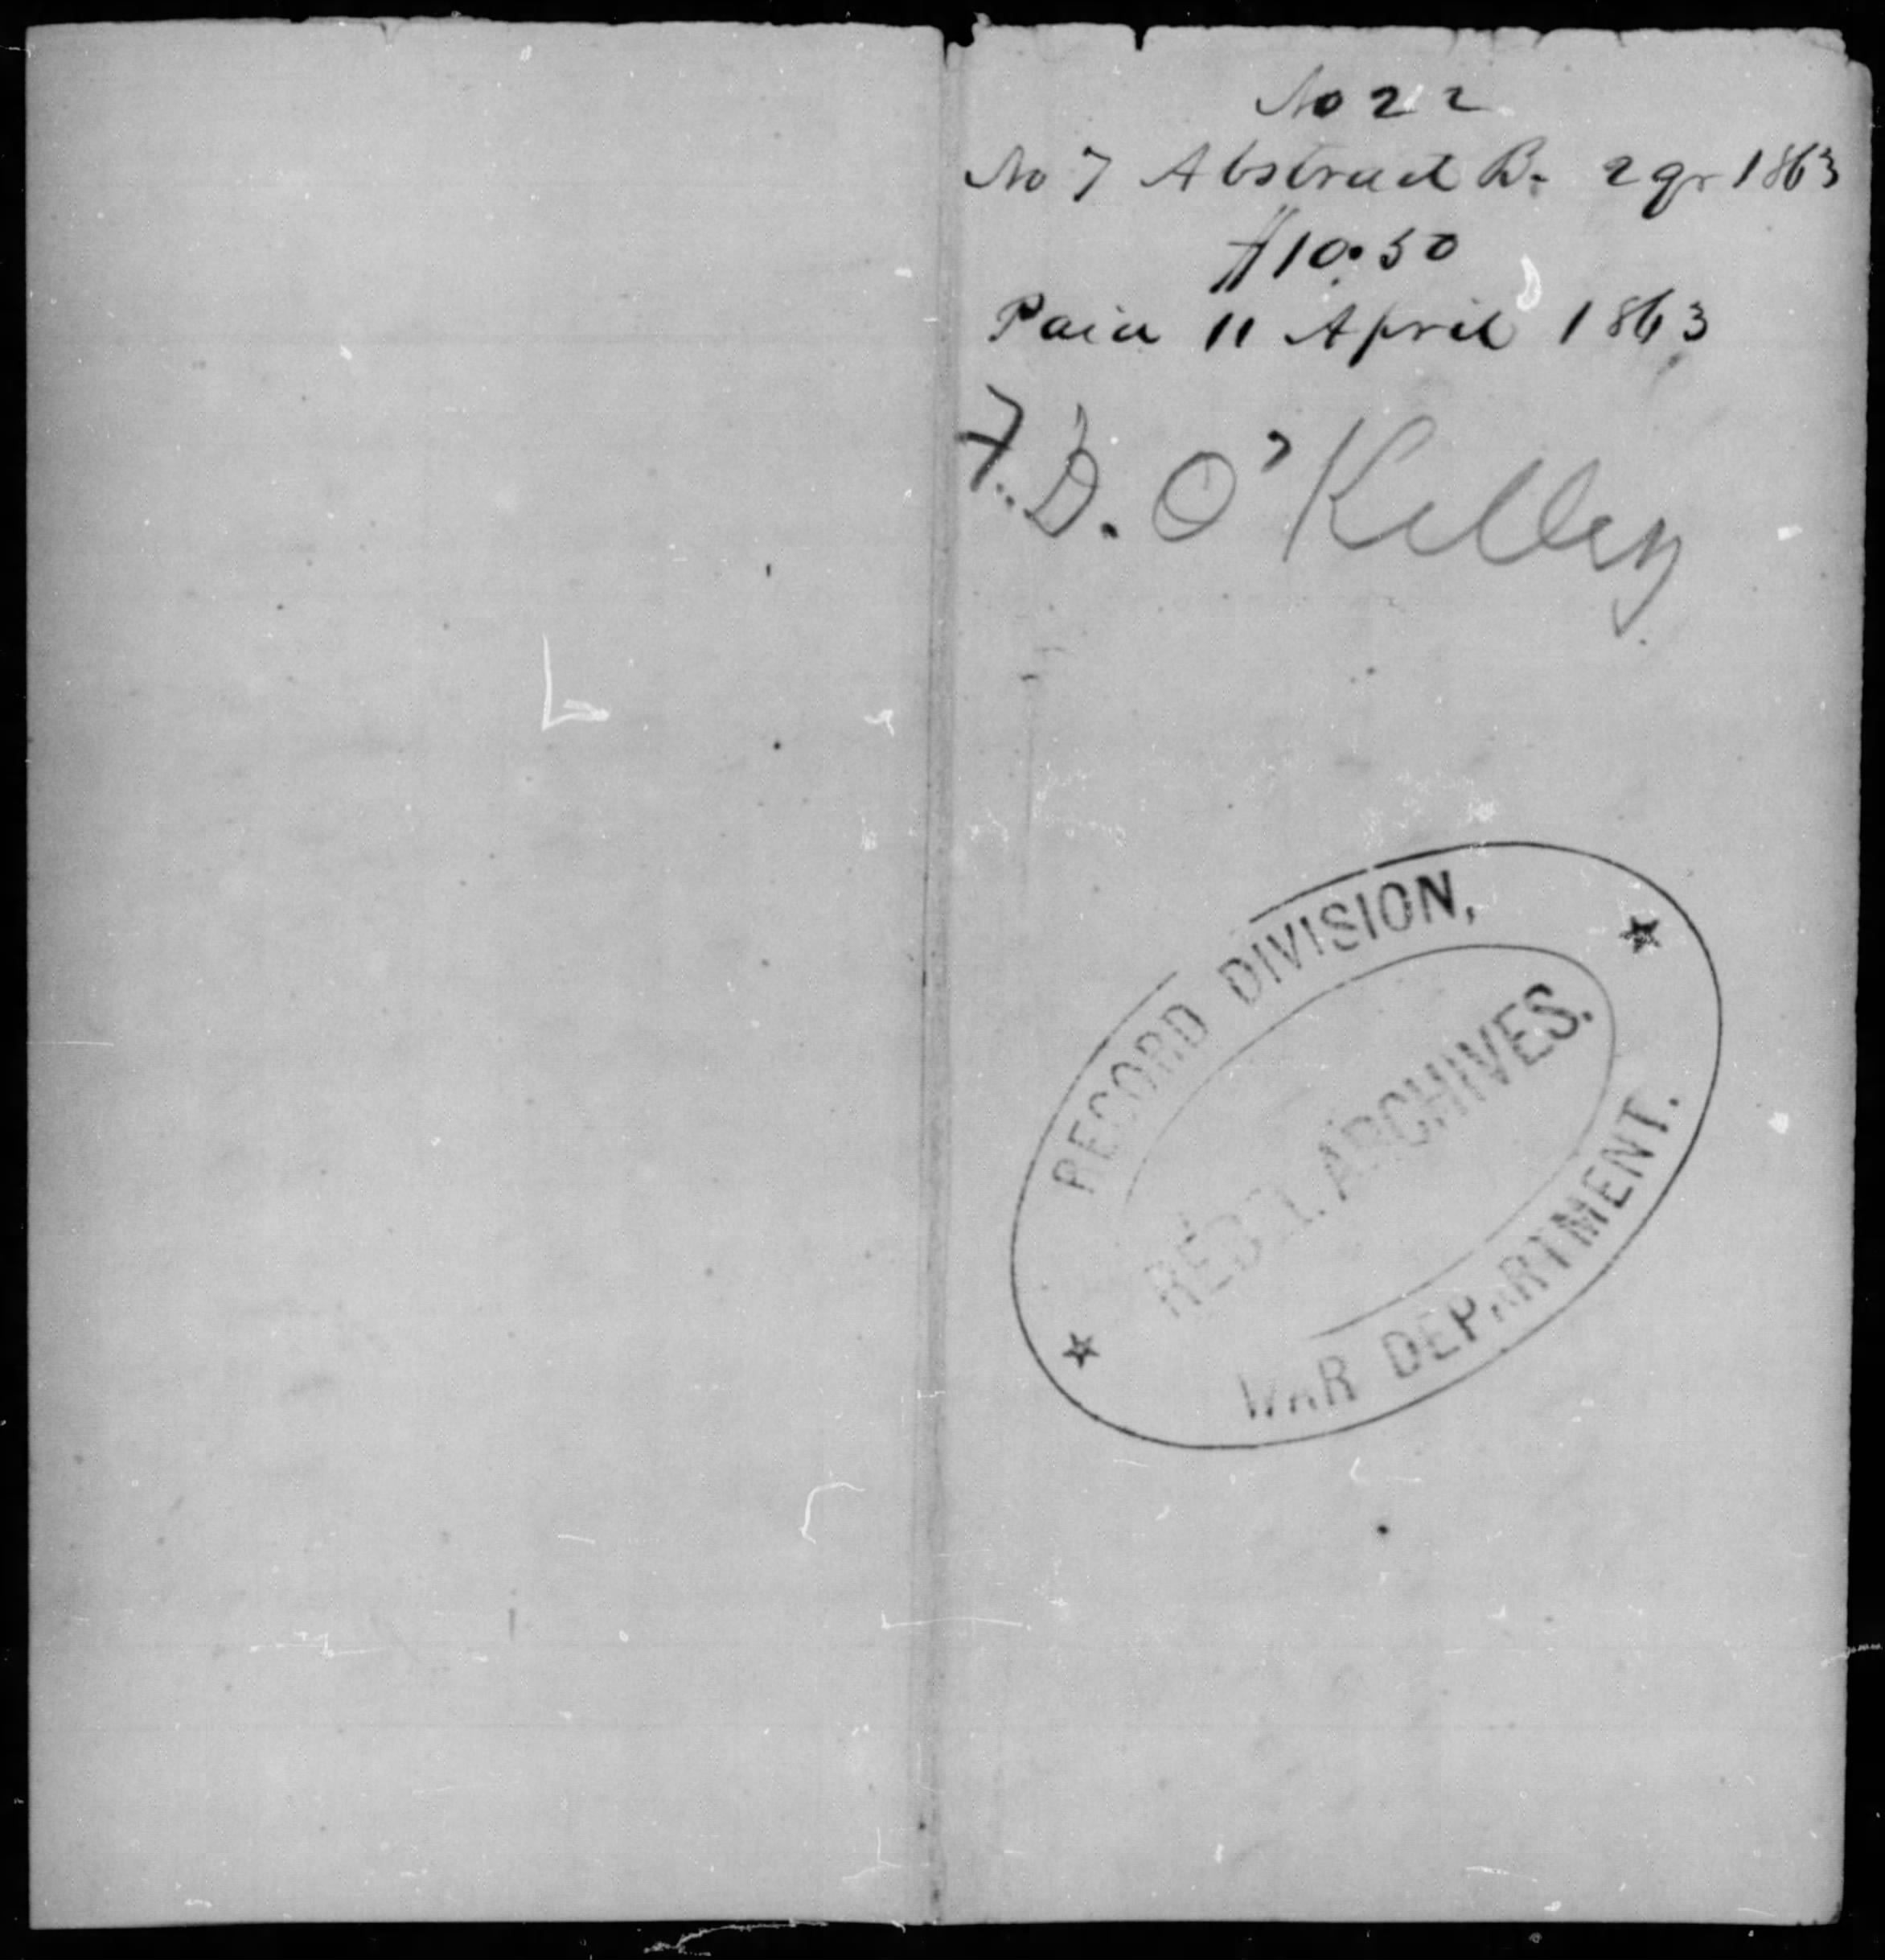 No 22
No 7 Abstract B. 2 qr 1863
$10.50
Paid 11 April 1863
F. D. O'Kelley
RECORD DIVISION,
REBEL ARCHIVES.
WAR DEPARTMENT.